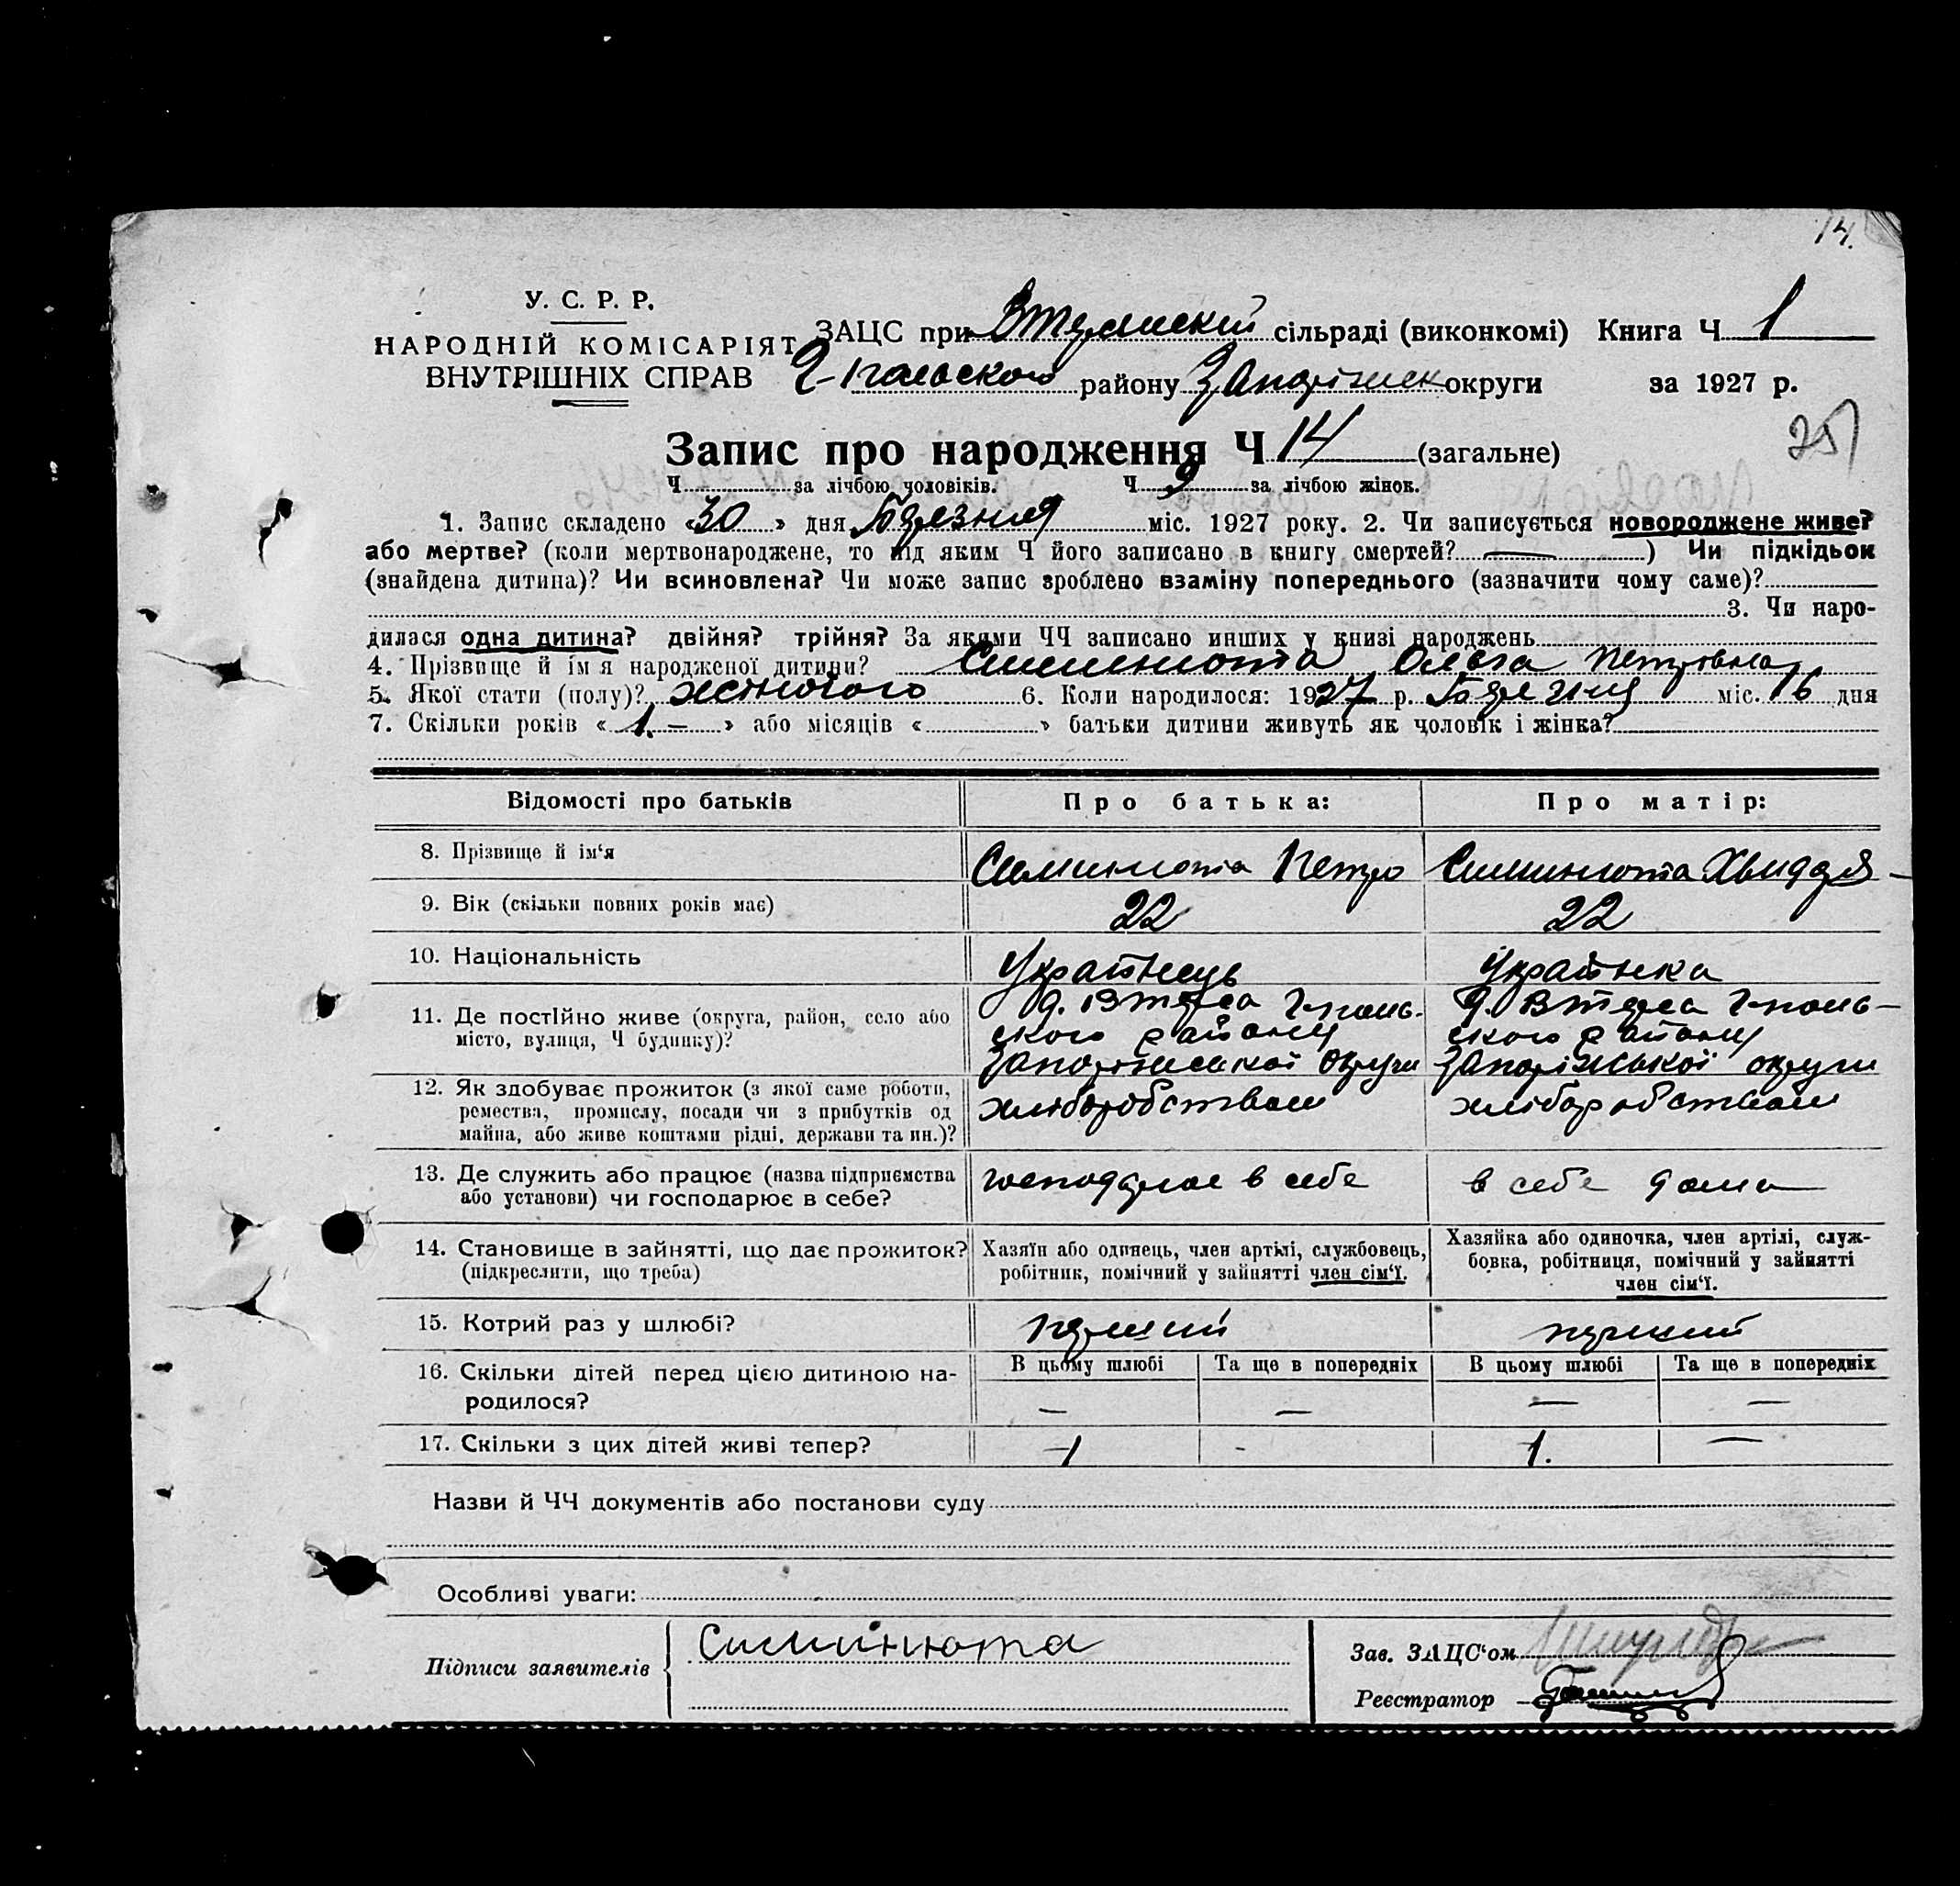 14.
У. С. Р. Р.
НАРОДНІЙ КОМІСАРІЯТ
ВНУТРІШНІХ СПРАВ
ЗАЦС при сільраді (виконкомі) Книга Ч 1
району Запоріжськ округи за 1927 р.
Запис про народження Ч 14 (загальне)
Ч за лічбою чоловіків. Ч 9 за лічбою жінок.
1. Запис складено «30» дня Березня міс. 1927 року. 2. Чи записується новороджене живе?
або мертве? (коли мертвонароджене, то під яким Ч його записано в книгу смертей? —) Чи підкідьок
(знайдена дитина)? Чи всиновлена? Чи може запис зроблено взаміну попереднього (зазначити чому саме)?
3. Чи наро-
дилася одна дитина? двійня? трійня? За якими ЧЧ записано инших у книзі народжень
4. Прізвище й ім'я народженої дитини? Симинюта Ольга Петровна
5. Якої стати (полу)? жіночого 6. Коли народилося: 1927 р. Березня міс. 16 дня
7. Скільки років «1.=» або місяців « » батьки дитини живуть як чоловік і жінка?
Відомості про батьків Про батька: Про матір:
8. Прізвище й ім'я Симинюта Петро Симинюта
9. Вік (скільки повних років має) 22 22
10. Національність Українець Українка
11. Де постійно живе (округа, район, село або
місто, вулиця, Ч будинку)?
ського району ського району
Запоріжської округи Запоріжської округи
12. Як здобуває прожиток (з якої саме роботи,
ремества, промислу, посади чи з прибутків од
майна, або живе коштами рідні, держави та ин.)?
хліборобством хліборобством
13. Де служить або працює (назва підприємства
або установи) чи господарює в себе?
господарює в себе в себе дома
14. Становище в зайнятті, що дає прожиток?
(підкреслити, що треба)
Хазяїн або одинець, член артілі, службовець,
робітник, помічний у зайнятті член сім'ї.
Хазяйка або одиночка, член артілі, служ-
бовка, робітниця, помічний у зайнятті
член сім'ї.
15. Котрий раз у шлюбі? перший перший
16. Скільки дітей перед цією дитиною на-
родилося?
В цьому шлюбі Та ще в попередніх В цьому шлюбі Та ще в попередніх
— — — —
17. Скільки з цих дітей живі тепер? 1 - 1. —
Назви й ЧЧ документів або постанови суду
Особливі уваги:
Підписи заявителів Симинюта
Зав. ЗАЦС'ом
Реєстратор